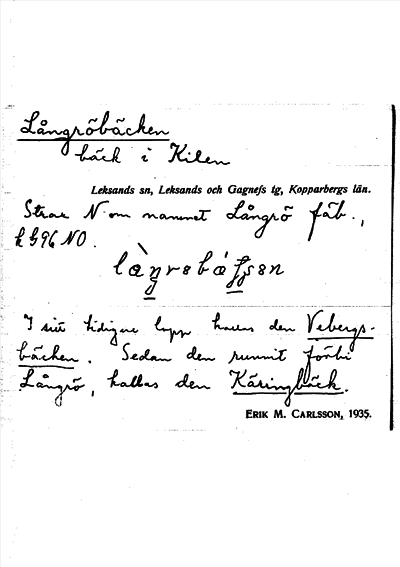 Långröbäcken
bäck i Kilen
Leksands sn, Leksands och Gagnefs tg, Kopparbergs län.
Strax N om namnet Långrö fäb.,
k 596 NO.
I sitt tidigare lopp kallas den Vebergs-
bäcken. Sedan den runnit förbi
Långrö, kallas den Käringbäck.
ERIK M. CARLSSON, 1935.